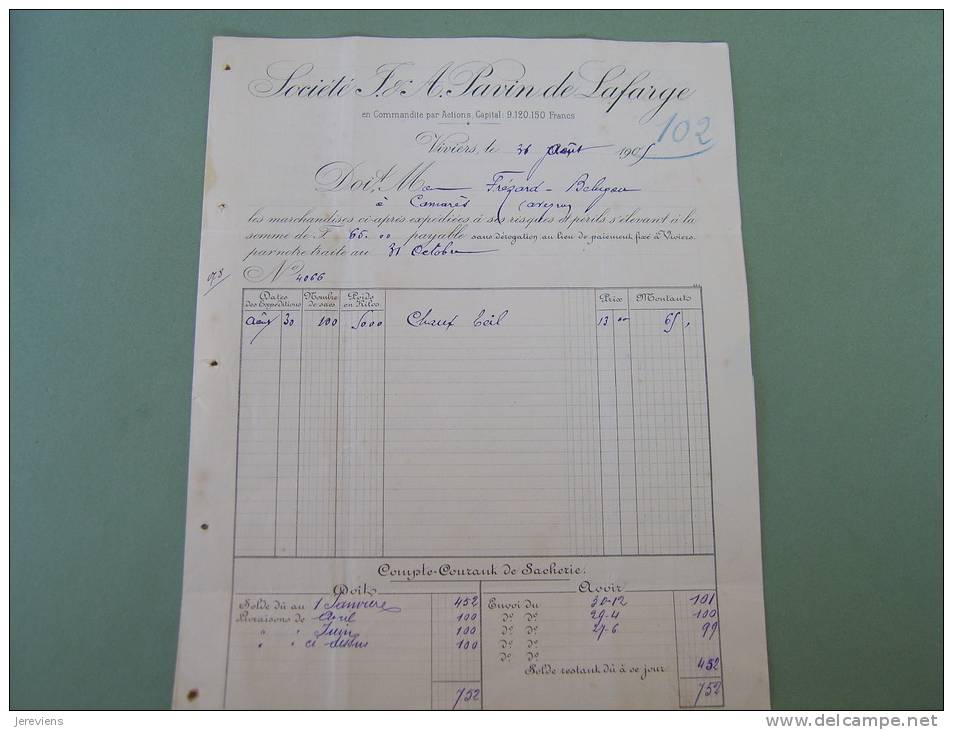 Société J. & A. Pavin de Lafarge
en Commandite par Actions, Capital: 9.120.150 Francs
102
Viviers, le 31 Août 1905
Doit M
à Camarès (Aveyron)
les marchandises ci-après expédiées à ses risques et périls s'élevant à la
somme de F 65.00 payable sans dérogation au lieu de paiement fixé à Viviers.
par notre traite au 31 Octobre
No 4066
Dates des Expéditions Nombre de sacs Poids en Kilos Prix Montant
Août 30 100 5000 Chaux Teil 13 00 65 "
Compte-Courant de Sacherie.
Doit Avoir
Solde dû au 1 Janvier 452 Envoi du 30-12 101
Livraisons de Avril 100 do do 29-4 100
" " Juin 100 do do 29-6 99
" " ci-dessus 100 do do
do do
Solde restant dû à ce jour 452
752 752
Jereviens
www.delcampe.net